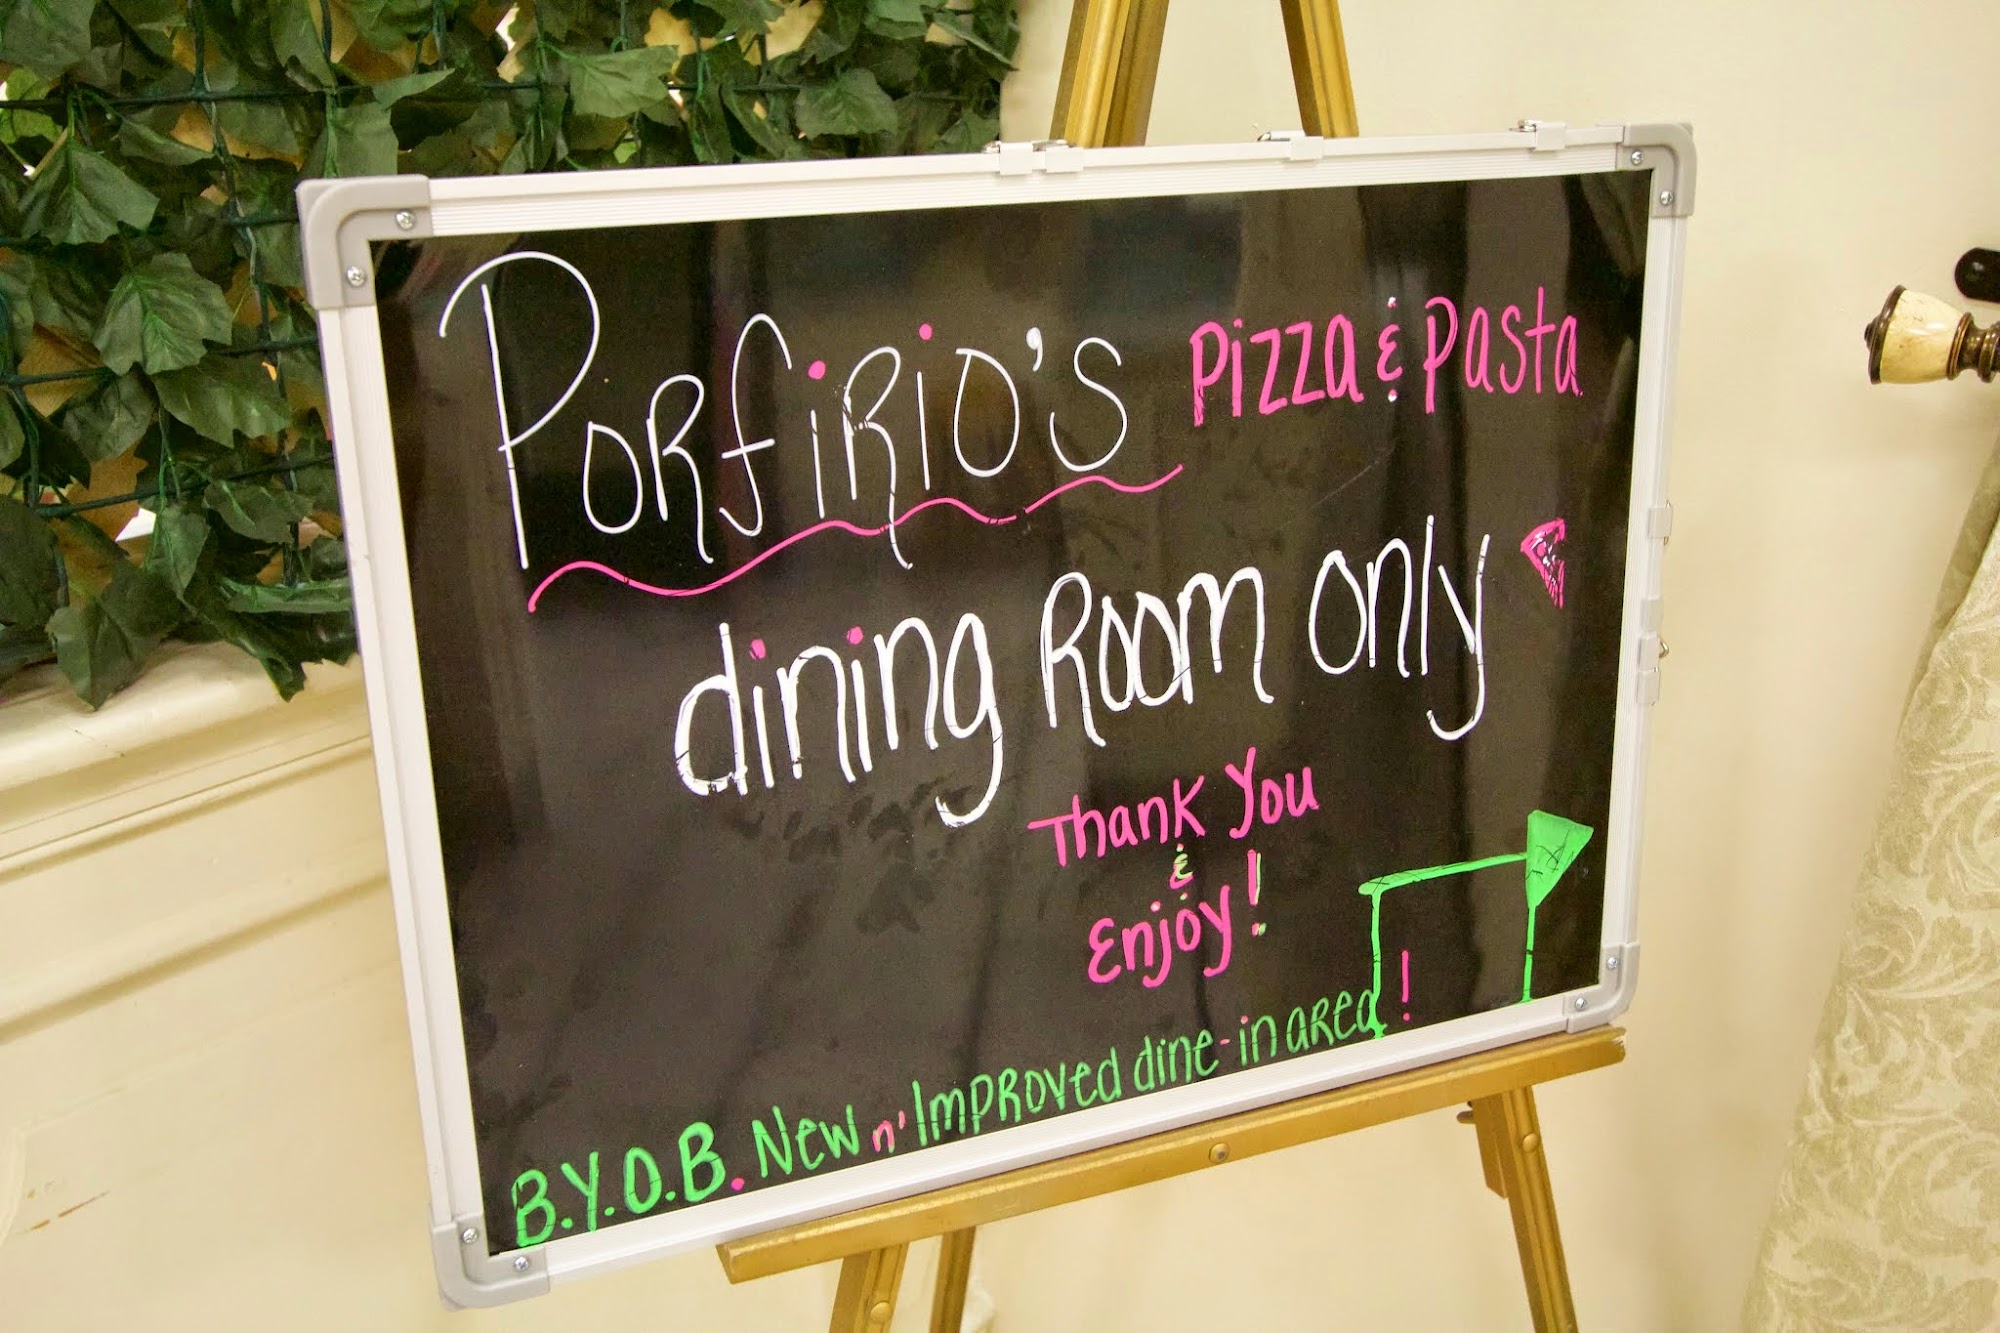 Porfirio's Pizza & Pasta
dining Room only
Thank You
&
Enjoy!
B.Y.O.B. New n' Improved dine-in area!